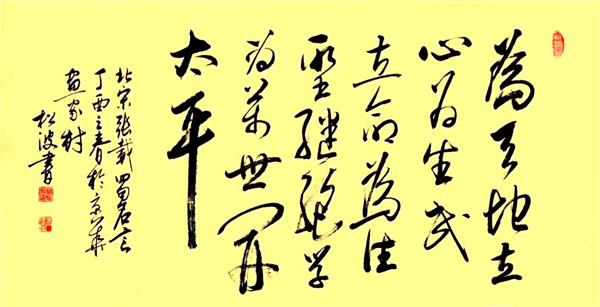 為天地立
心为生民
立命為往
聖繼絕學
为萬世開
太平
北宋張載四句言
丁酉之春於京華
畫家村
松波書